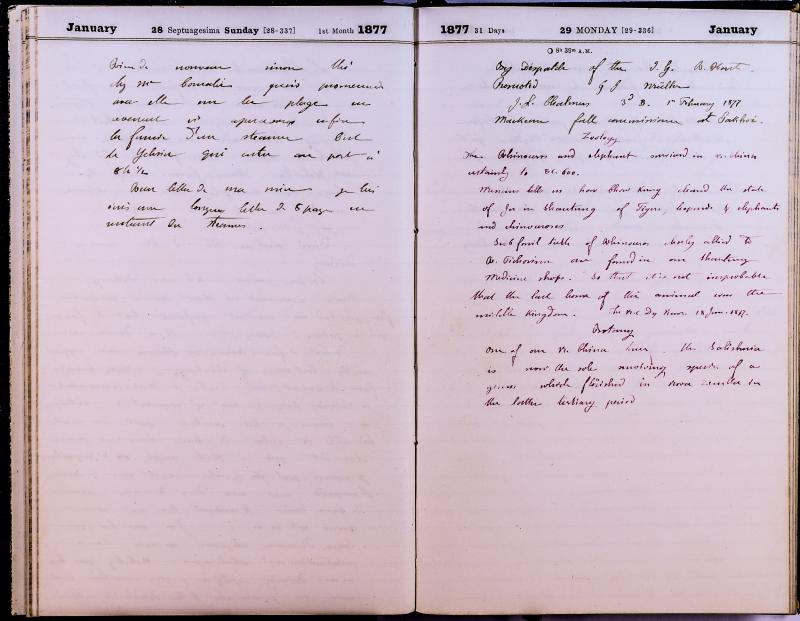 January 28 Septuagesima Sunday [28-337] 1st Month 1877
Rien de nouveau sinon thé
chez Mr puis promenade
avec elle sur la plage en
revenant et enfin
la fumée d'un steamer C'est
le qui entre au port à
8h ½
Deux lettres de ma je lui
écris une longue lettre de 8 pages en
du
1877 31 Days 29 MONDAY [29-336] January
8h 38m A.M.
By Dispatch of the I. G. R. Hart.
Promoted G F Müller
J. L. Chalmers 3d B. 1st February 1877
full commissioner at Pakhoi.
Zoology
The Rhinoceros and elephant survived in N. China
certainly to B.C. 600.
Mencius tells us how Chow Kung cleared the state
of in Shantung of Tigers, leopards & elephants
and rhinoceroses
Sub fossil teeth of Rhinoceros closely allied to
R. Tichorinus are found in our Shantung
Medicine shops. So that it is not improbable
that the last home of this animal was the
middle Kingdom. The N.C. Dy News. 18 Jan. 1877.
Botany
One of our N. China trees, the Salisburia
is now the sole surviving species of a
genus which flourished in Nova Zembla in
the latter tertiary period